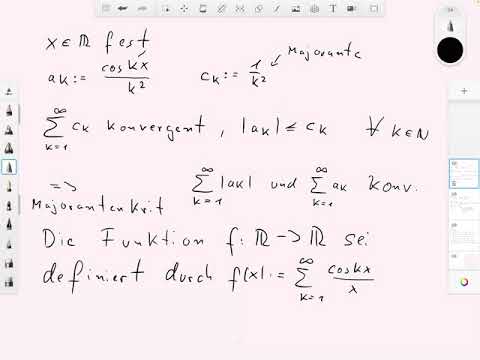 x ∈ ℝ fest
Majorante
a_k := cos kx / k²   c_k := 1/k²
∑_{k=1}^∞ c_k konvergent, |a_k| ≤ c_k ∀ k∈ℕ
=> ∑_{k=1}^∞ |a_k| und ∑_{k=1}^∞ a_k konv.
Majorantenkrit
Die Funktion f: ℝ -> ℝ sei
definiert durch f(x) := ∑_{k=1}^∞ cos kx / x